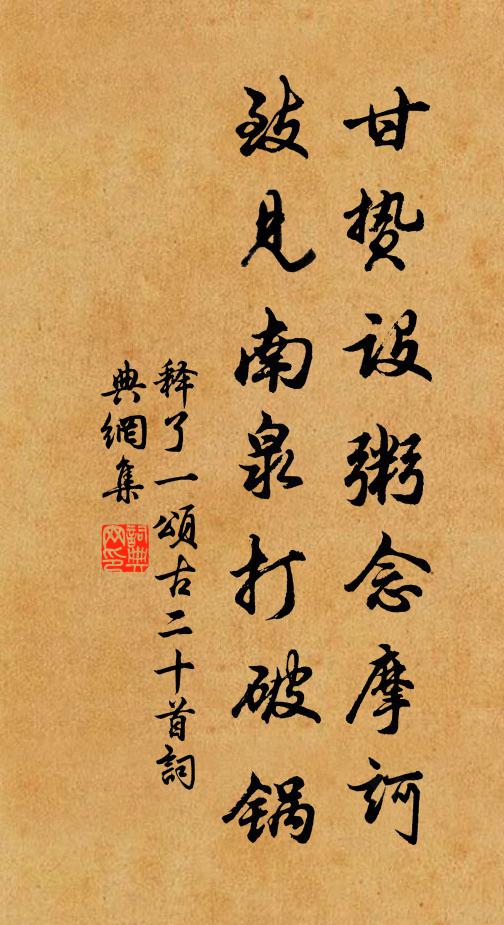 甘贽设粥念摩诃
致见南泉打破锅
释了一頌古二十首詞
典網集
詞典
网印